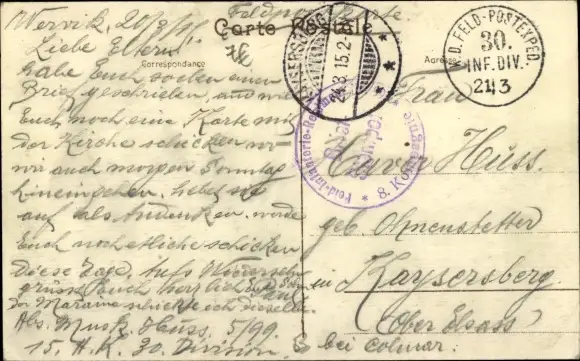 Feldpostkarte
Carte Postale
Correspondance
Adresse
Wervik, 20/3/15
Liebe Eltern!
habe Euch soeben einen
Brief geschrieben, und will
Euch noch eine Karte mit
der Kirche schicken wo
wir auch morgen Sonntag
hineingehen. hebet sie
auf als Andenken. werde
Euch noch etliche schicken
diese Tage. Aufs Wiedersehn
grüsst Euch herzlich
Der Maraine schickte ich dieselbe.
Abs. Musk. Huss, 5/99
15. A.K. 30. Division,
KAYSERSBERG
24.3.15.2-
K.D. FELD-POSTEXPED.
30.
INF. DIV.
21/3
8. Kompagnie
Frau
Xaver Huss.
geb Omenstetter
in Kaysersberg
Ober Elsass
bei Colmar.